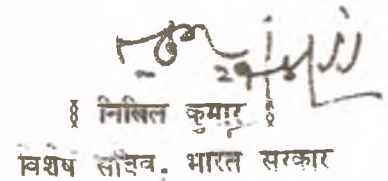 § निखिल कुमार §
विशेष सचिव. भारत सरकार